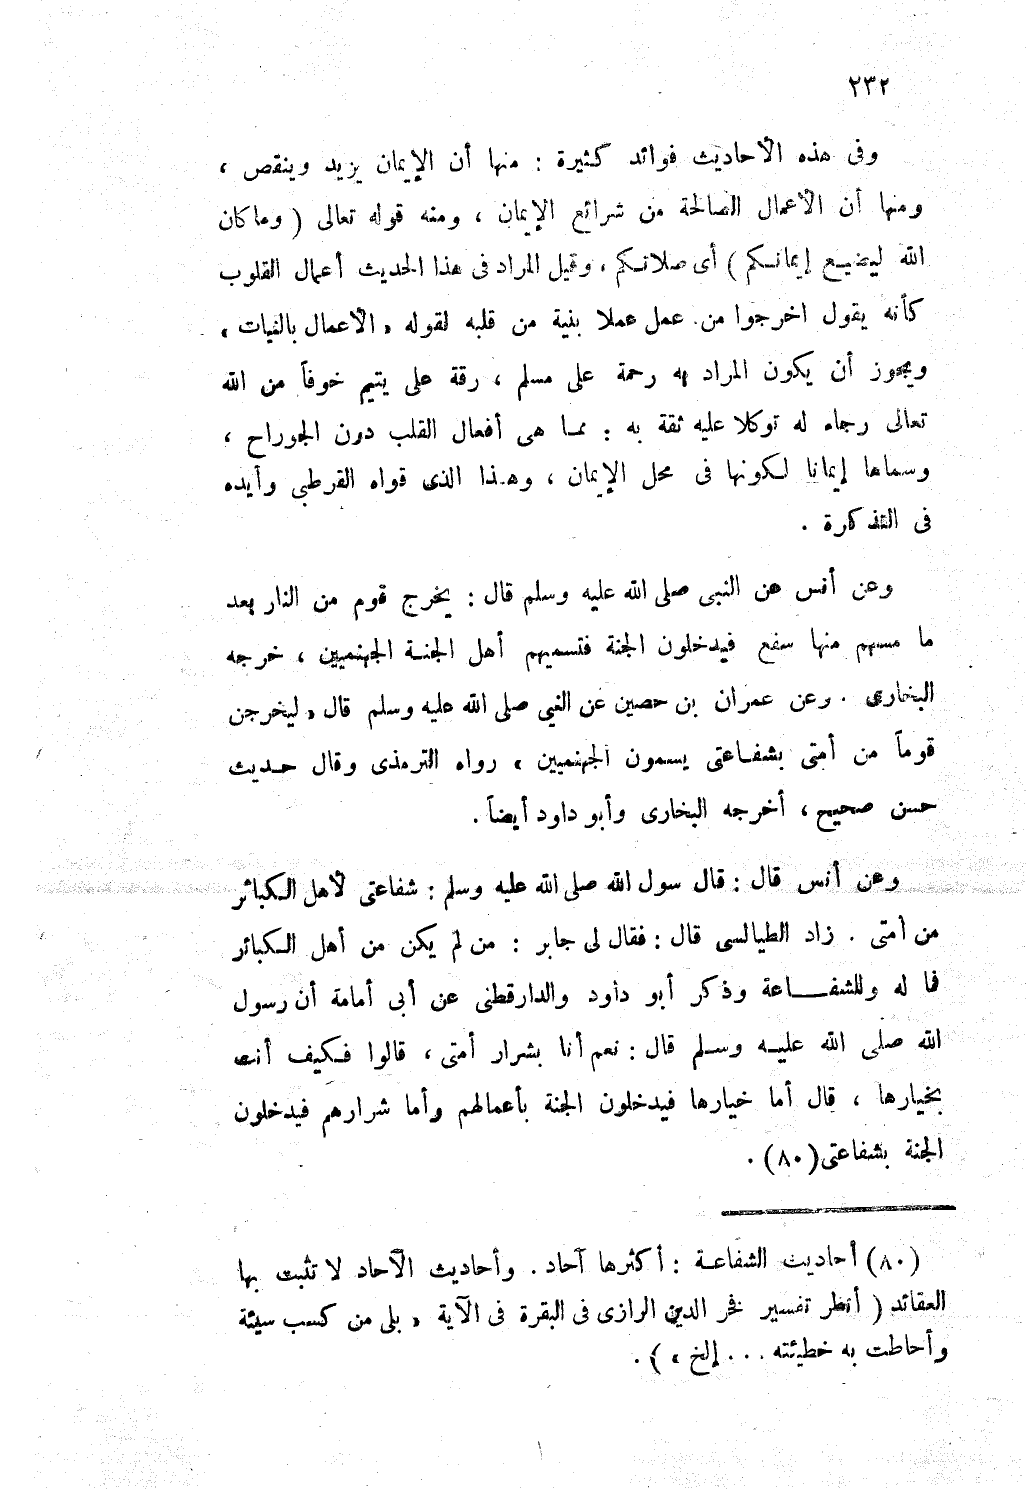 ٢٣٢
وفى هذه الأحاديث فوائد كثيرة : منها أن الإيمان يزيد وينقص ،
ومنها أن الأعمال الصالحة من شرائع الإيمان ، ومنه قوله تعالى ( وما كان
الله ليضيع إيمانكم ) أى صلاتكم ، وقيل المراد فى هذا الحديث أعمال القلوب
كأنه يقول اخرجوا من عمل عملا بنية من قلبه لقوله « الأعمال بالنيات »
ويجوز أن يكون المراد به رحمة على مسلم ، رقة على يتيم خوفاً من الله
تعالى رجاء له توكلا عليه ثقة به : مما هى أفعال القلب دون الجوراح ،
وسماها إيمانا لكونها فى محل الإيمان ، وهذا الذى قواه القرطبى وأيده
فى التذكارة .
وعن أنس عن النبى صلى الله عليه وسلم قال : يخرج قوم من النار بعد
ما مسهم منها سفع فيدخلون الجنة فتسميهم أهل الجنة الجهنميين ، خرجه
البخارى . وعن عمران بن حصين عن النبي صلى الله عليه وسلم قال « ليخرجن
قوماً من أمتى بشفاعتى يسمون الجهنميين » رواه الترمذى وقال حديث
حسن صحيح ، أخرجه البخارى وأبو داود أيضاً .
وعن أنس قال : قال سول الله صلى الله عليه وسلم : شفاعتى لأهل الكبائر
من أمتى . زاد الطيالسى قال : فقال لى جابر : من لم يكن من أهل الكبائر
فما له وللشفاعة وذكر أبو داود والدارقطنى عن أبى أمامة أن رسول
الله صلى الله عليه وسلم قال : نعم أنا بشرار أمتى ، قالوا فكيف أنت
بخيارها ، قال أما خيارها فيدخلون الجنة بأعمالهم وأما شرارهم فيدخلون
الجنة بشفاعتى(٨٠) .
(٨٠) أحاديث الشفاعة : أكثرها آحاد . وأحاديث الآحاد لا تثبت بها
العقائد ( أنظر تفسير فخر الدين الرازى فى البقرة فى الآية « بلى من كسب سيئة
وأحاطت به خطيئته ... إلخ » ) .